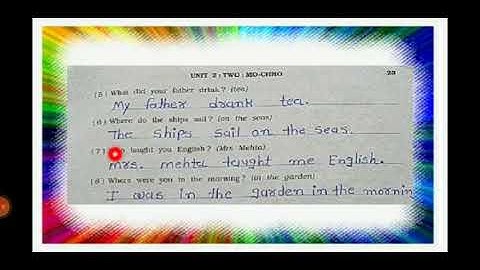 UNIT 2 : TWO : MO-CHHO 23
(5) What did your father drink? (tea)
My father drank tea.
(6) Where do the ships sail? (on the seas)
The ships sail on the seas.
(7) taught you English? (Mrs Mehta)
Mrs. mehta taught me English.
(8) Where were you in the morning? (in the garden)
I was in the garden in the mornin